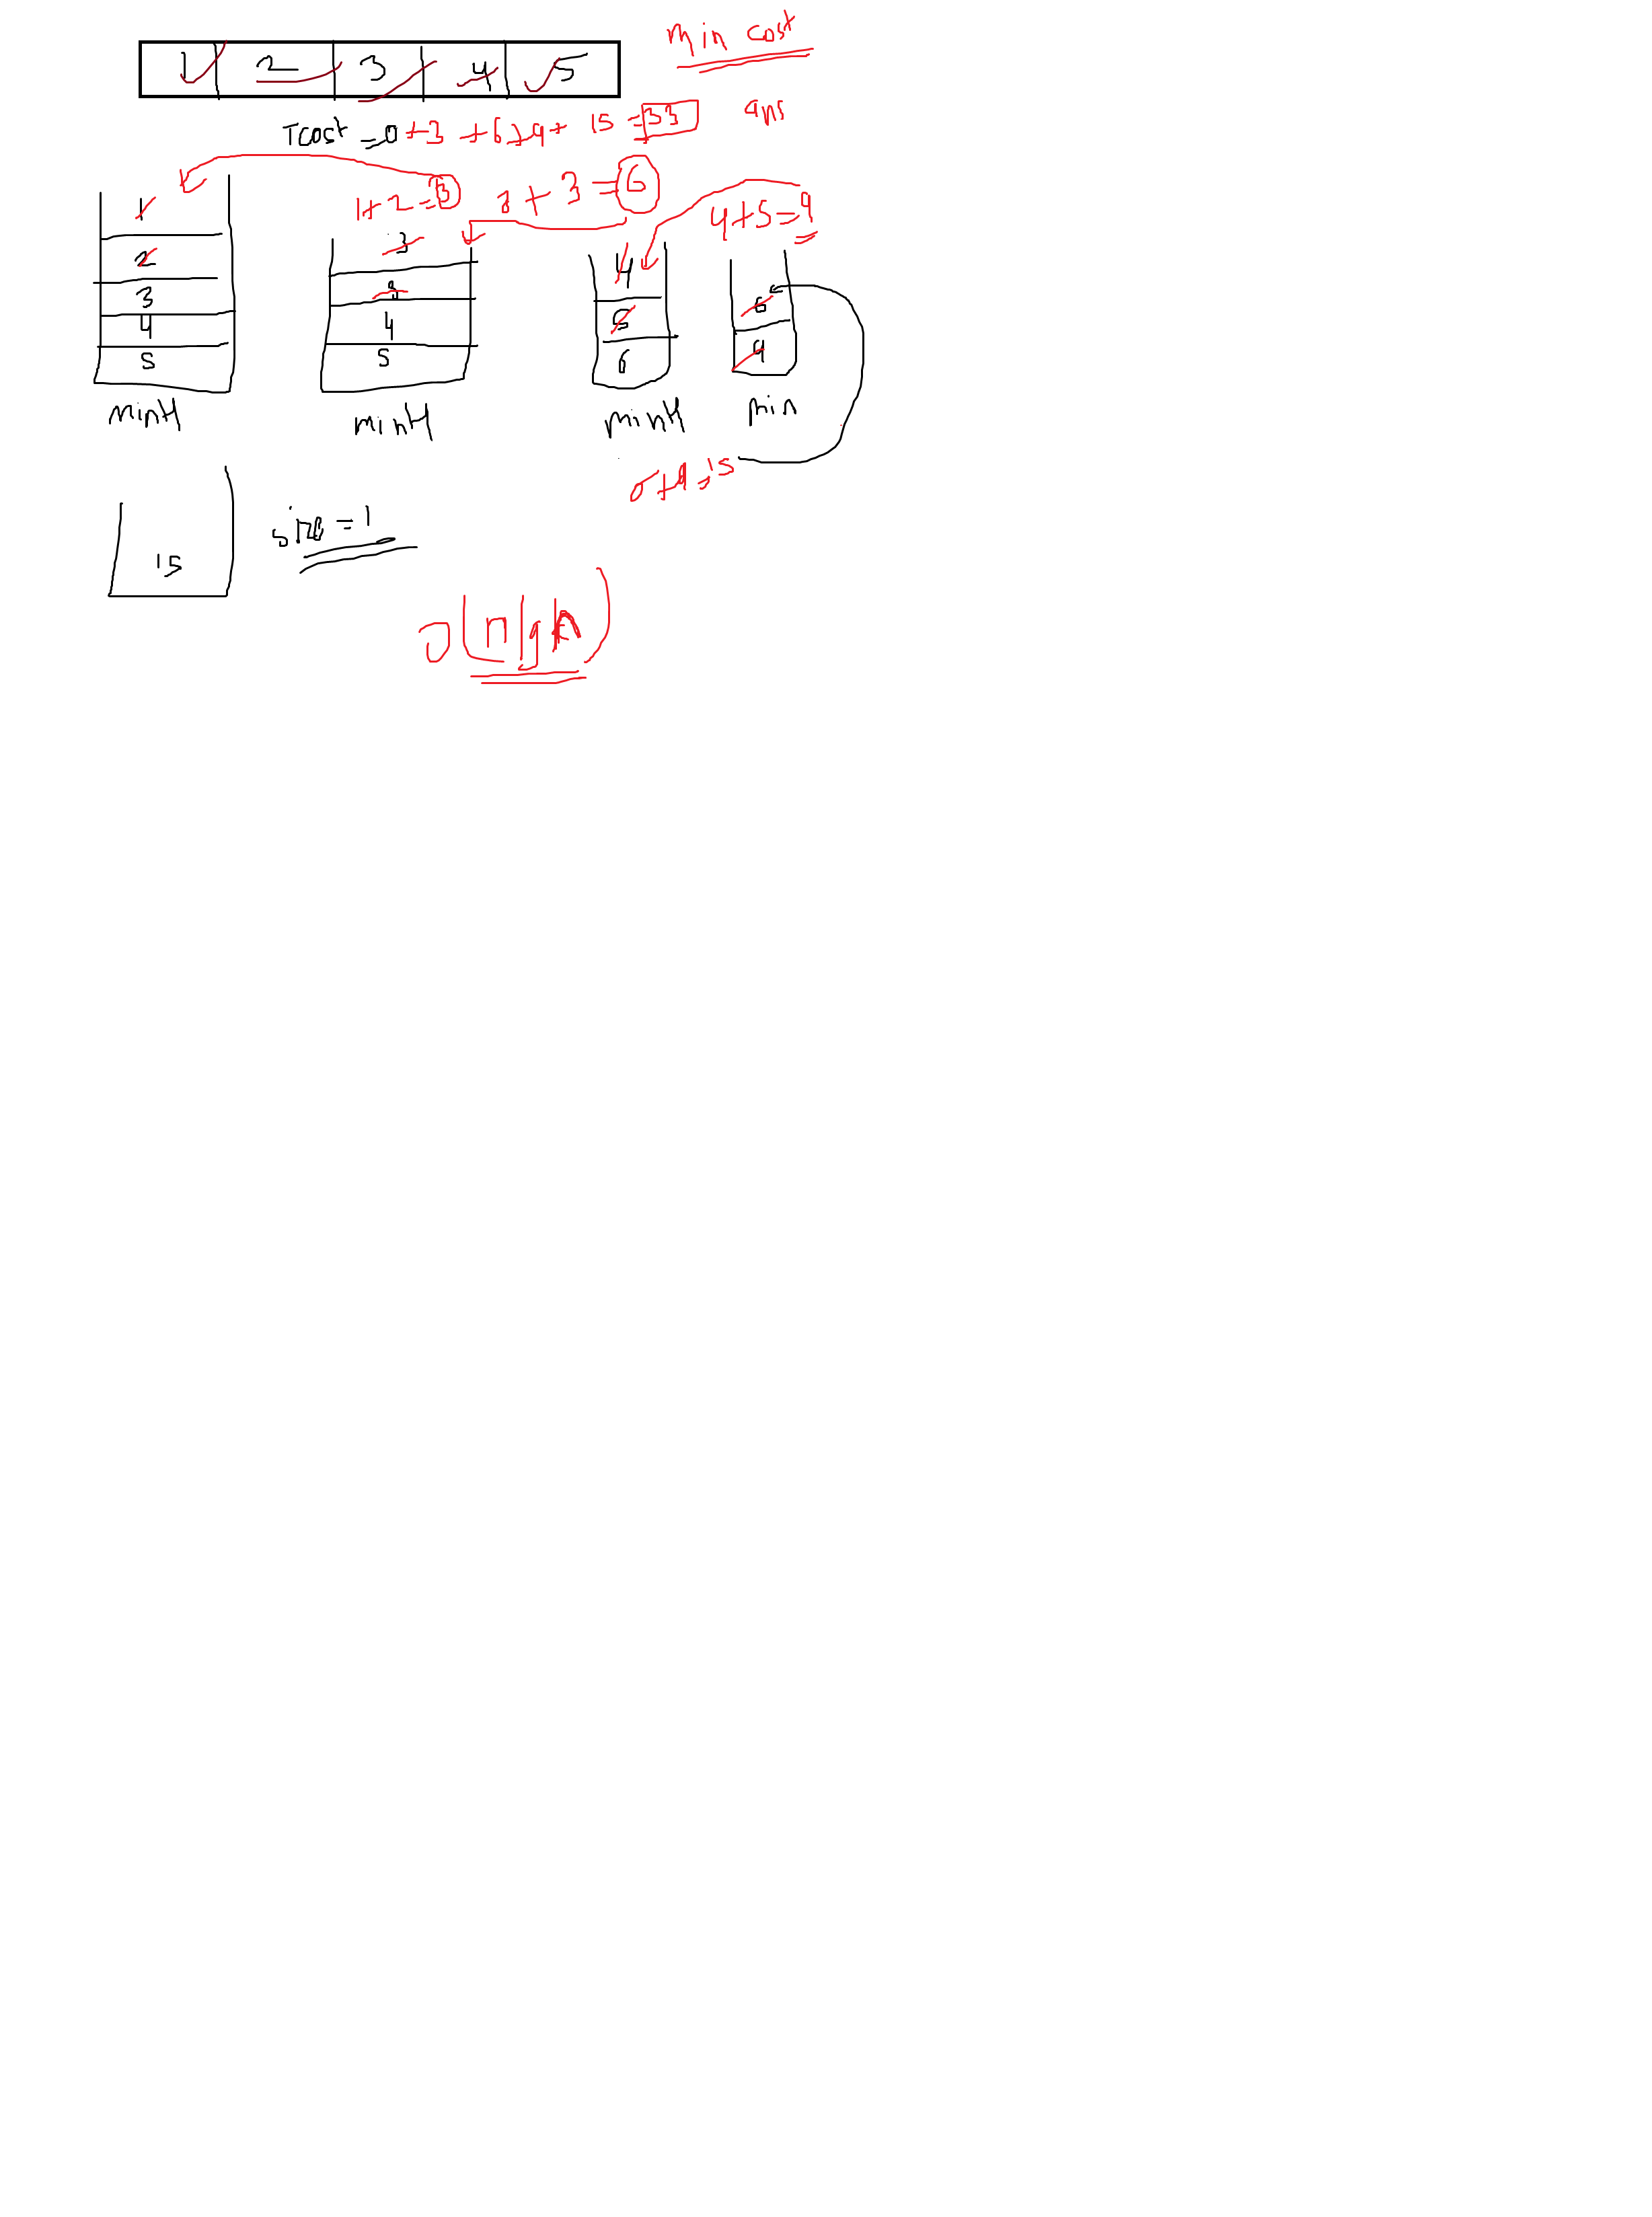 min cost
1 2 3 4 5
Tcost = 0 + 3 + 6 + 9 + 15 = 33 ans
1 + 2 = 3 3 + 3 = 6 4 + 5 = 9
1
2
3
4
5
minH
3
3
4
5
minH
4
5
6
minH
6
9
min
6 + 9 = 15
15
size = 1